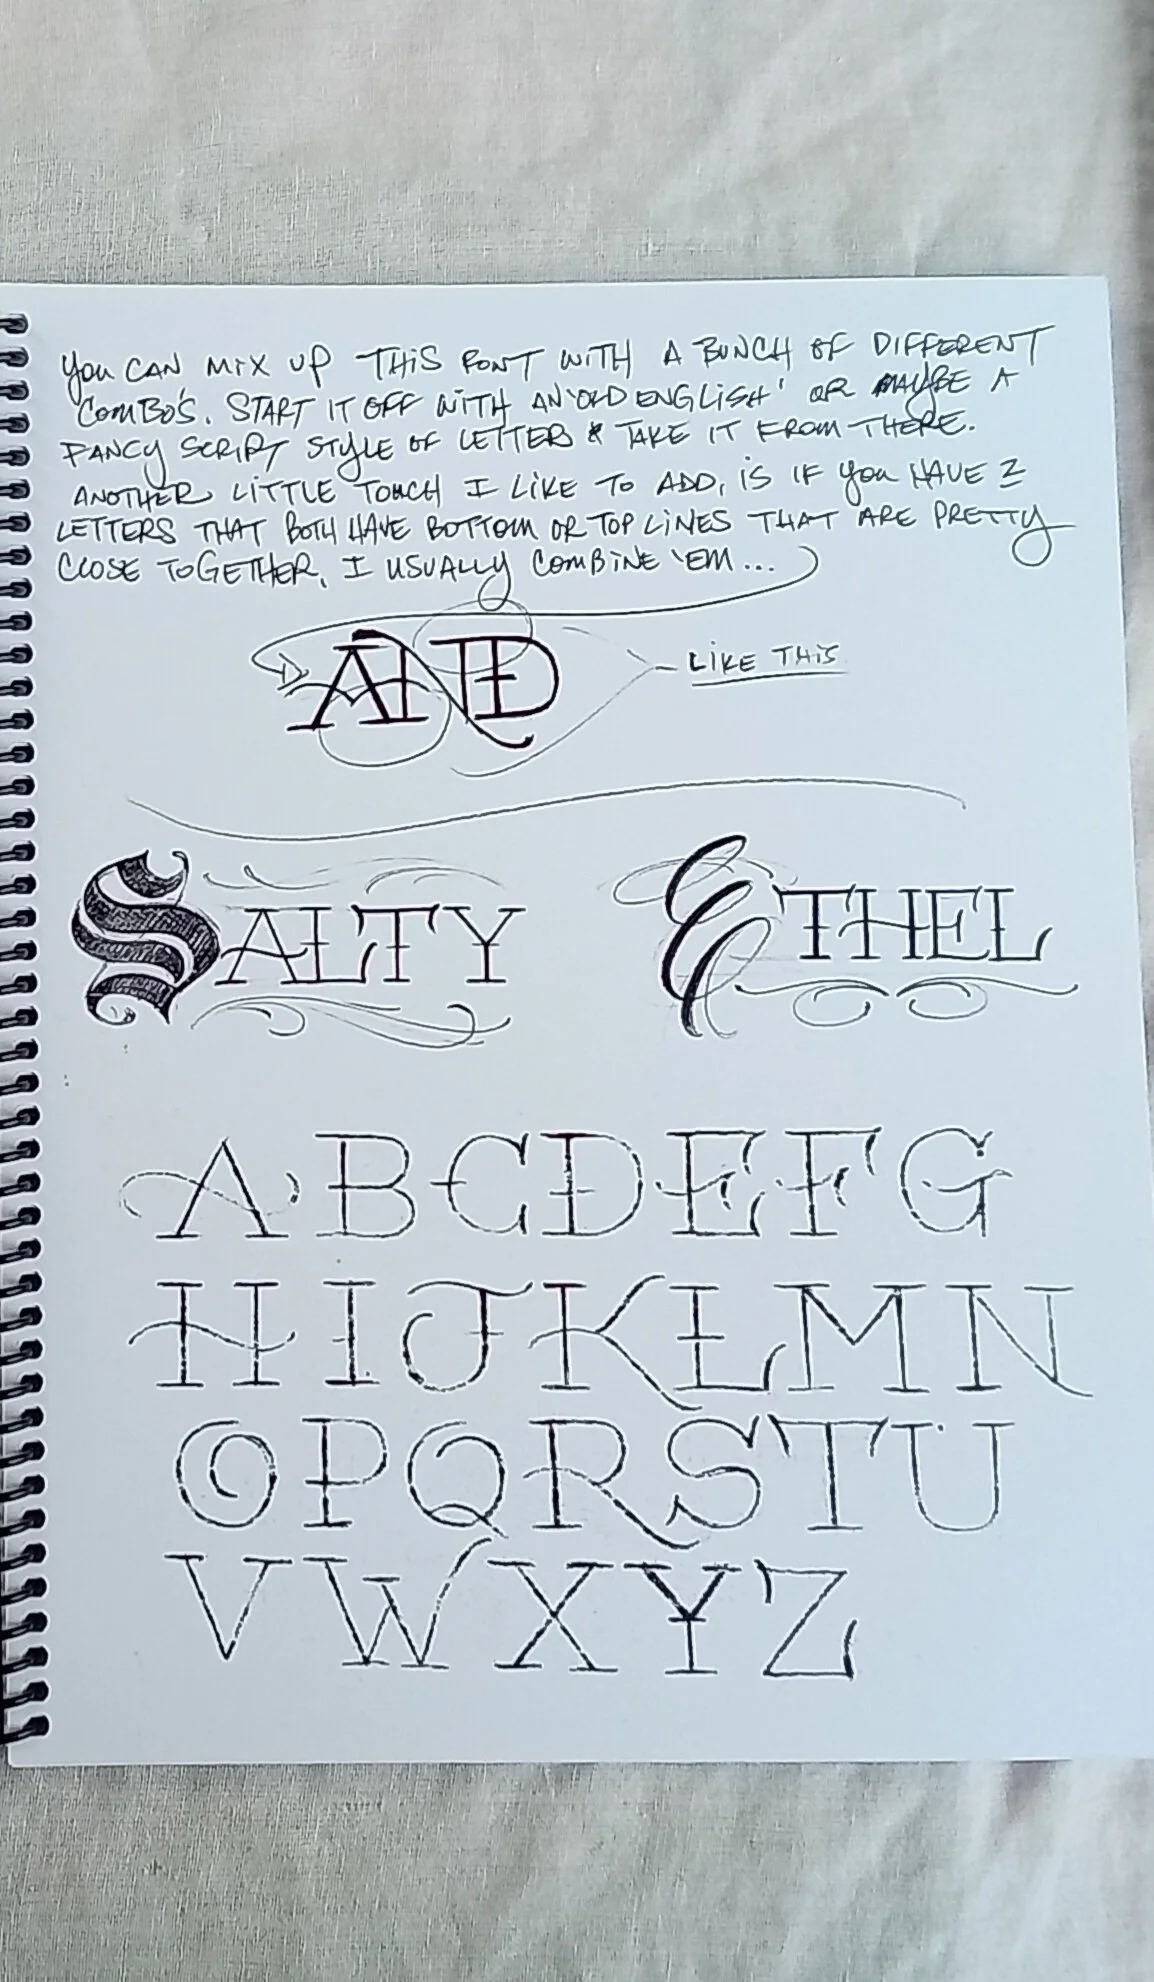 YOU CAN MIX UP THIS FONT WITH A BUNCH OF DIFFERENT
COMBO'S. START IT OFF WITH AN 'OLD ENGLISH' OR MAYBE A
FANCY SCRIPT STYLE OF LETTER & TAKE IT FROM THERE.
ANOTHER LITTLE TOUCH I LIKE TO ADD, IS IF YOU HAVE 2
LETTERS THAT BOTH HAVE BOTTOM OR TOP LINES THAT ARE PRETTY
CLOSE TOGETHER, I USUALLY COMBINE 'EM...
AND
LIKE THIS
SALTY
ETHEL
A B C D E F G
H I J K L M N
O P Q R S T U
V W X Y Z